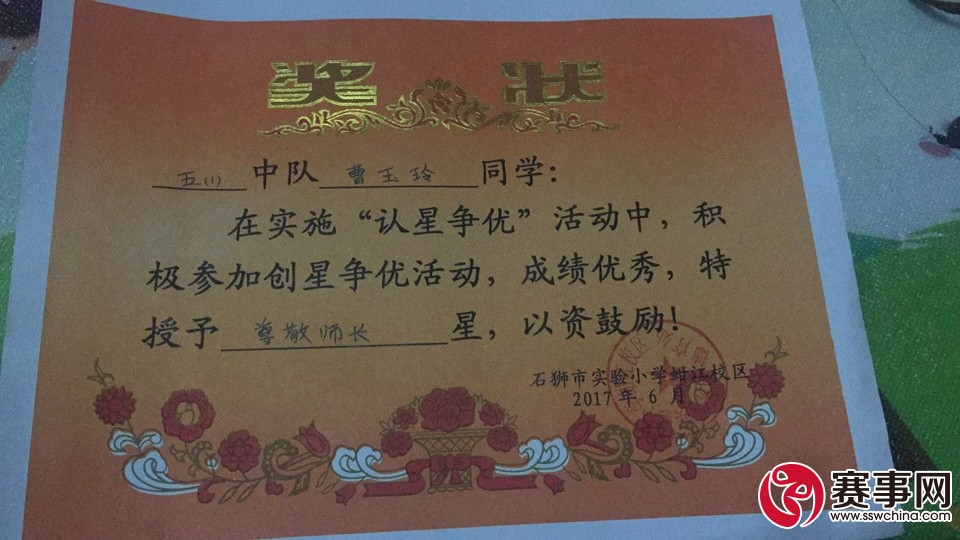 奖 状
五(1)中队 曹玉玲 同学:
在实施“认星争优”活动中,积
极参加创星争优活动,成绩优秀,特
授予 尊敬师长 星,以资鼓励!
石狮市实验小学蚶江校区
2017年6月
赛事网
www.sswchina.com